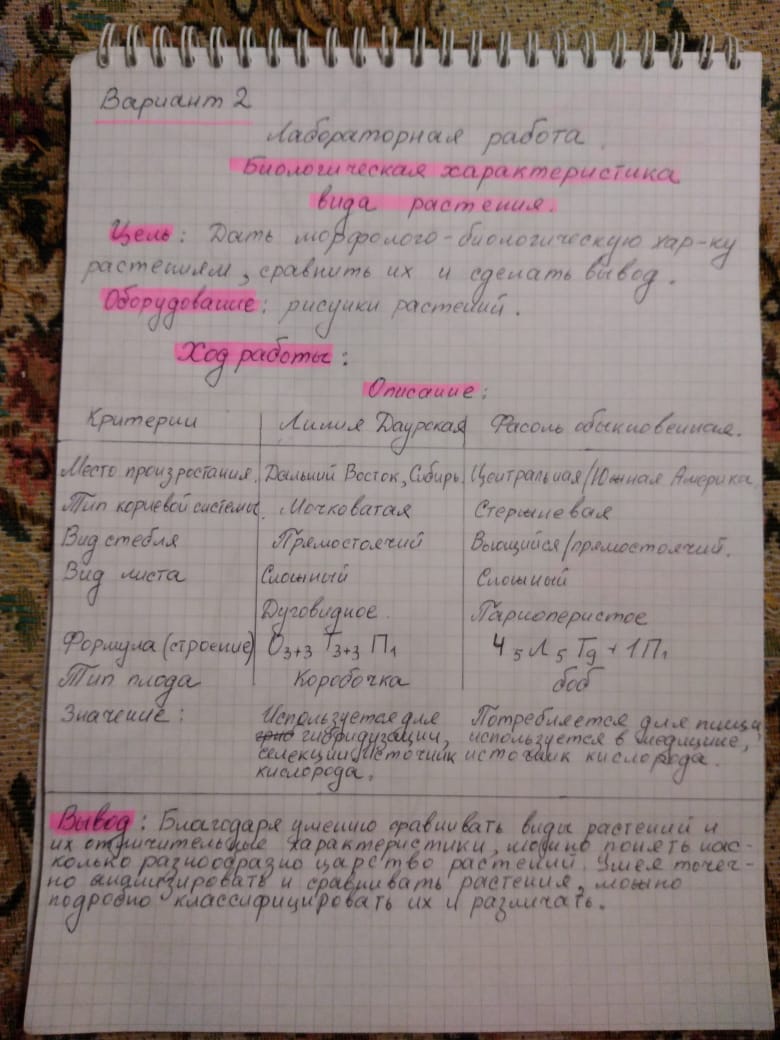 Вариант 2
Лабораторная работа.
Биологическая характеристика
вида растения.
Цель: Дать морфолого-биологическую хар-ку
растениям, сравнить их и сделать вывод.
Оборудование: рисунки растений.
Ход работы:
Описание:
Критерии Лилия Даурская Фасоль обыкновенная.
Место произростания. Дальний Восток, Сибирь. Центральная/Южная Америка
Тип корневой системы. Мочковатая Стержневая
Вид стебля Прямостоячий Вьющийся/прямостоячий.
Вид листа Сложный Сложный
Дуговидное. Парноперистое
Формула (строение) О3+3 Т3+3 П1 Ч5 Л5 Т9+1 П1
Тип плода Коробочка боб
Значение: Используется для Потребляется для пищи,
гибридузации, используется в медицине,
селекции. Источник источник кислорода.
кислорода.
Вывод: Благодаря умению сравнивать виды растений и
их отличительные характеристики, можно понять нас-
колько разнообразно царство растений. Умея точеч-
но анализировать и сравнивать растения, можно
подробно классифицировать их и различать.